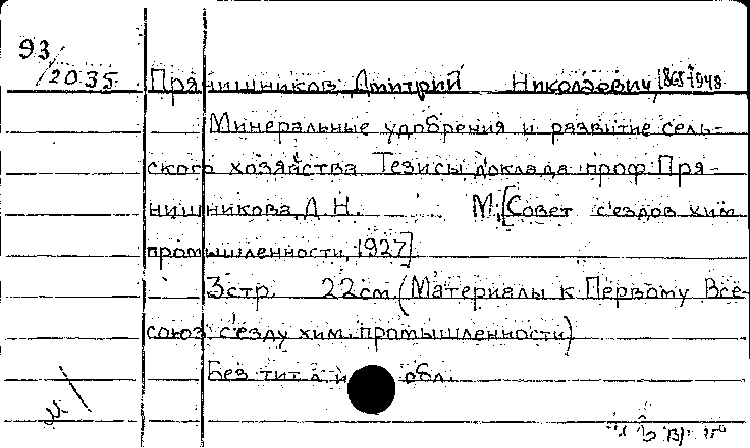 93/2035 Прянишников Дмитрий Николаевич, 1865-1948
Минеральные удобрения и развитие сель-
ского хозяйства Тезисы доклада проф. Пря-
нишникова, Д. Н. М., [Совет с'ездов хим.
промышленности, 1927]
3стр. 22см. (Материалы к Первому Все-
союз. с'езду хим. промышленности)
Без тит. л. и обл.